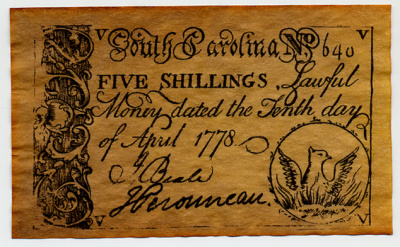 V South Carolina No 640 V
FIVE SHILLINGS, Lawful
Money dated the Tenth day
of April 1778.
Beale
V V